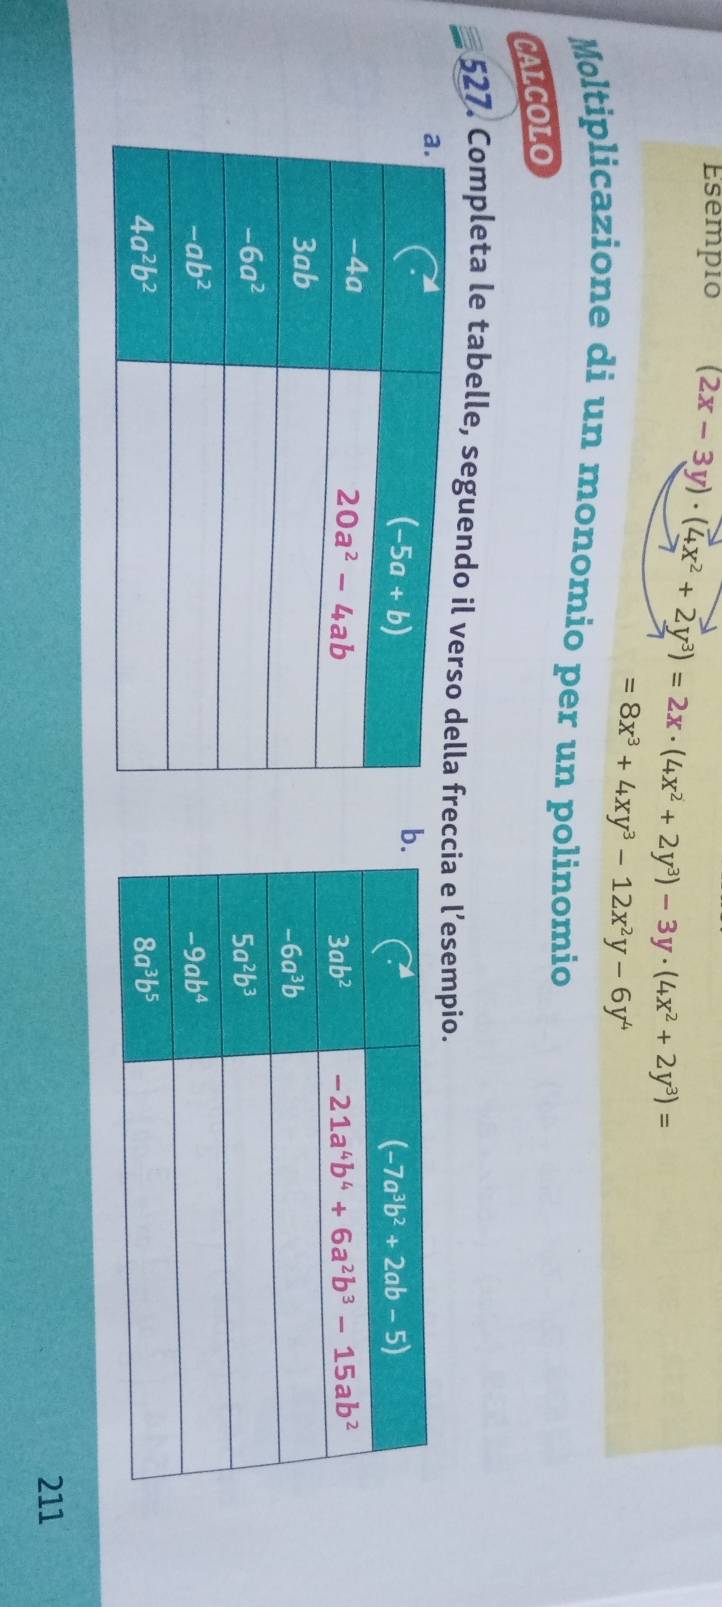 Esempio (2x – 3y) · (4x² + 2y³) = 2x · (4x² + 2y³) – 3y · (4x² + 2y³) =
= 8x³ + 4xy³ – 12x²y – 6y⁴
Moltiplicazione di un monomio per un polinomio
CALCOLO
527. Completa le tabelle, seguendo il verso della freccia e l'esempio.
a.
· (–5a + b)
–4a 20a² – 4ab
3ab
–6a²
–ab²
4a²b²
b.
· (–7a³b² + 2ab – 5)
3ab² –21a⁴b⁴ + 6a²b³ – 15ab²
–6a³b
5a²b³
–9ab⁴
8a³b⁵
211